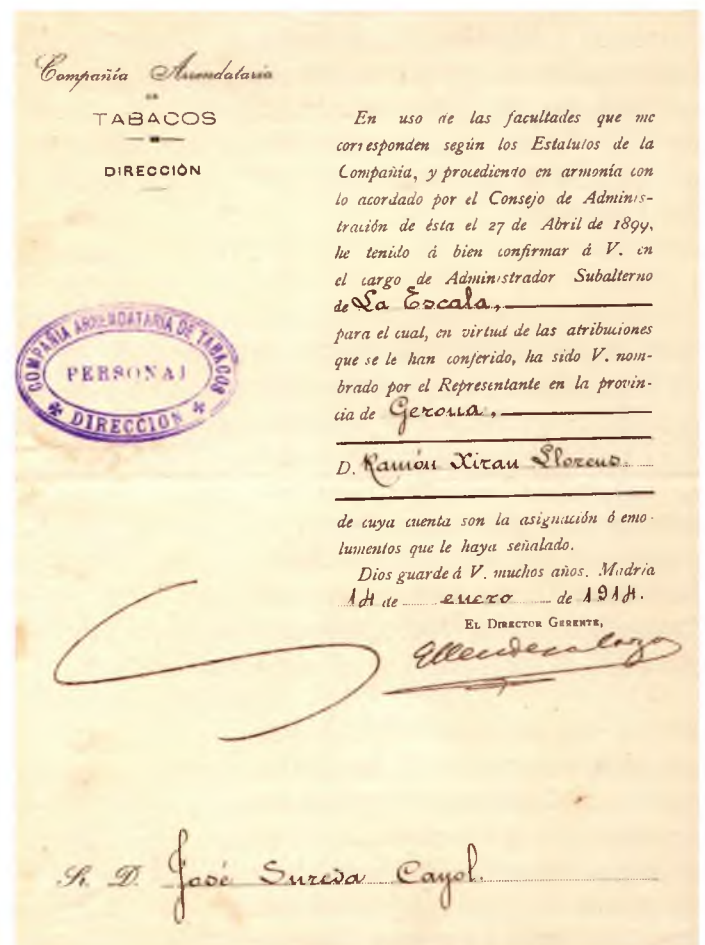 Compañía Arrendataria
DE
TABACOS
DIRECCIÓN
En uso de las facultades que me
corresponden según los Estatutos de la
Compañia, y procediendo en armonía con
lo acordado por el Consejo de Adminis-
tración de ésta el 27 de Abril de 1899,
he tenido á bien confirmar á V. en
el cargo de Administrador Subalterno
de La Escala,
para el cual, en virtud de las atribuciones
que se le han conferido, ha sido V. nom-
brado por el Representante en la provin-
cia de Gerona,
D. Ramón Xirau Llorens
de cuya cuenta son la asignación ó emo-
lumentos que le haya señalado.
Dios guarde á V. muchos años. Madrid
14 de enero de 1914.
EL DIRECTOR GERENTE,
COMPAÑIA ARRENDATARIA DE TABACOS
PERSONAL
DIRECCIÓN
Sr. D. José Sureda Cayol.